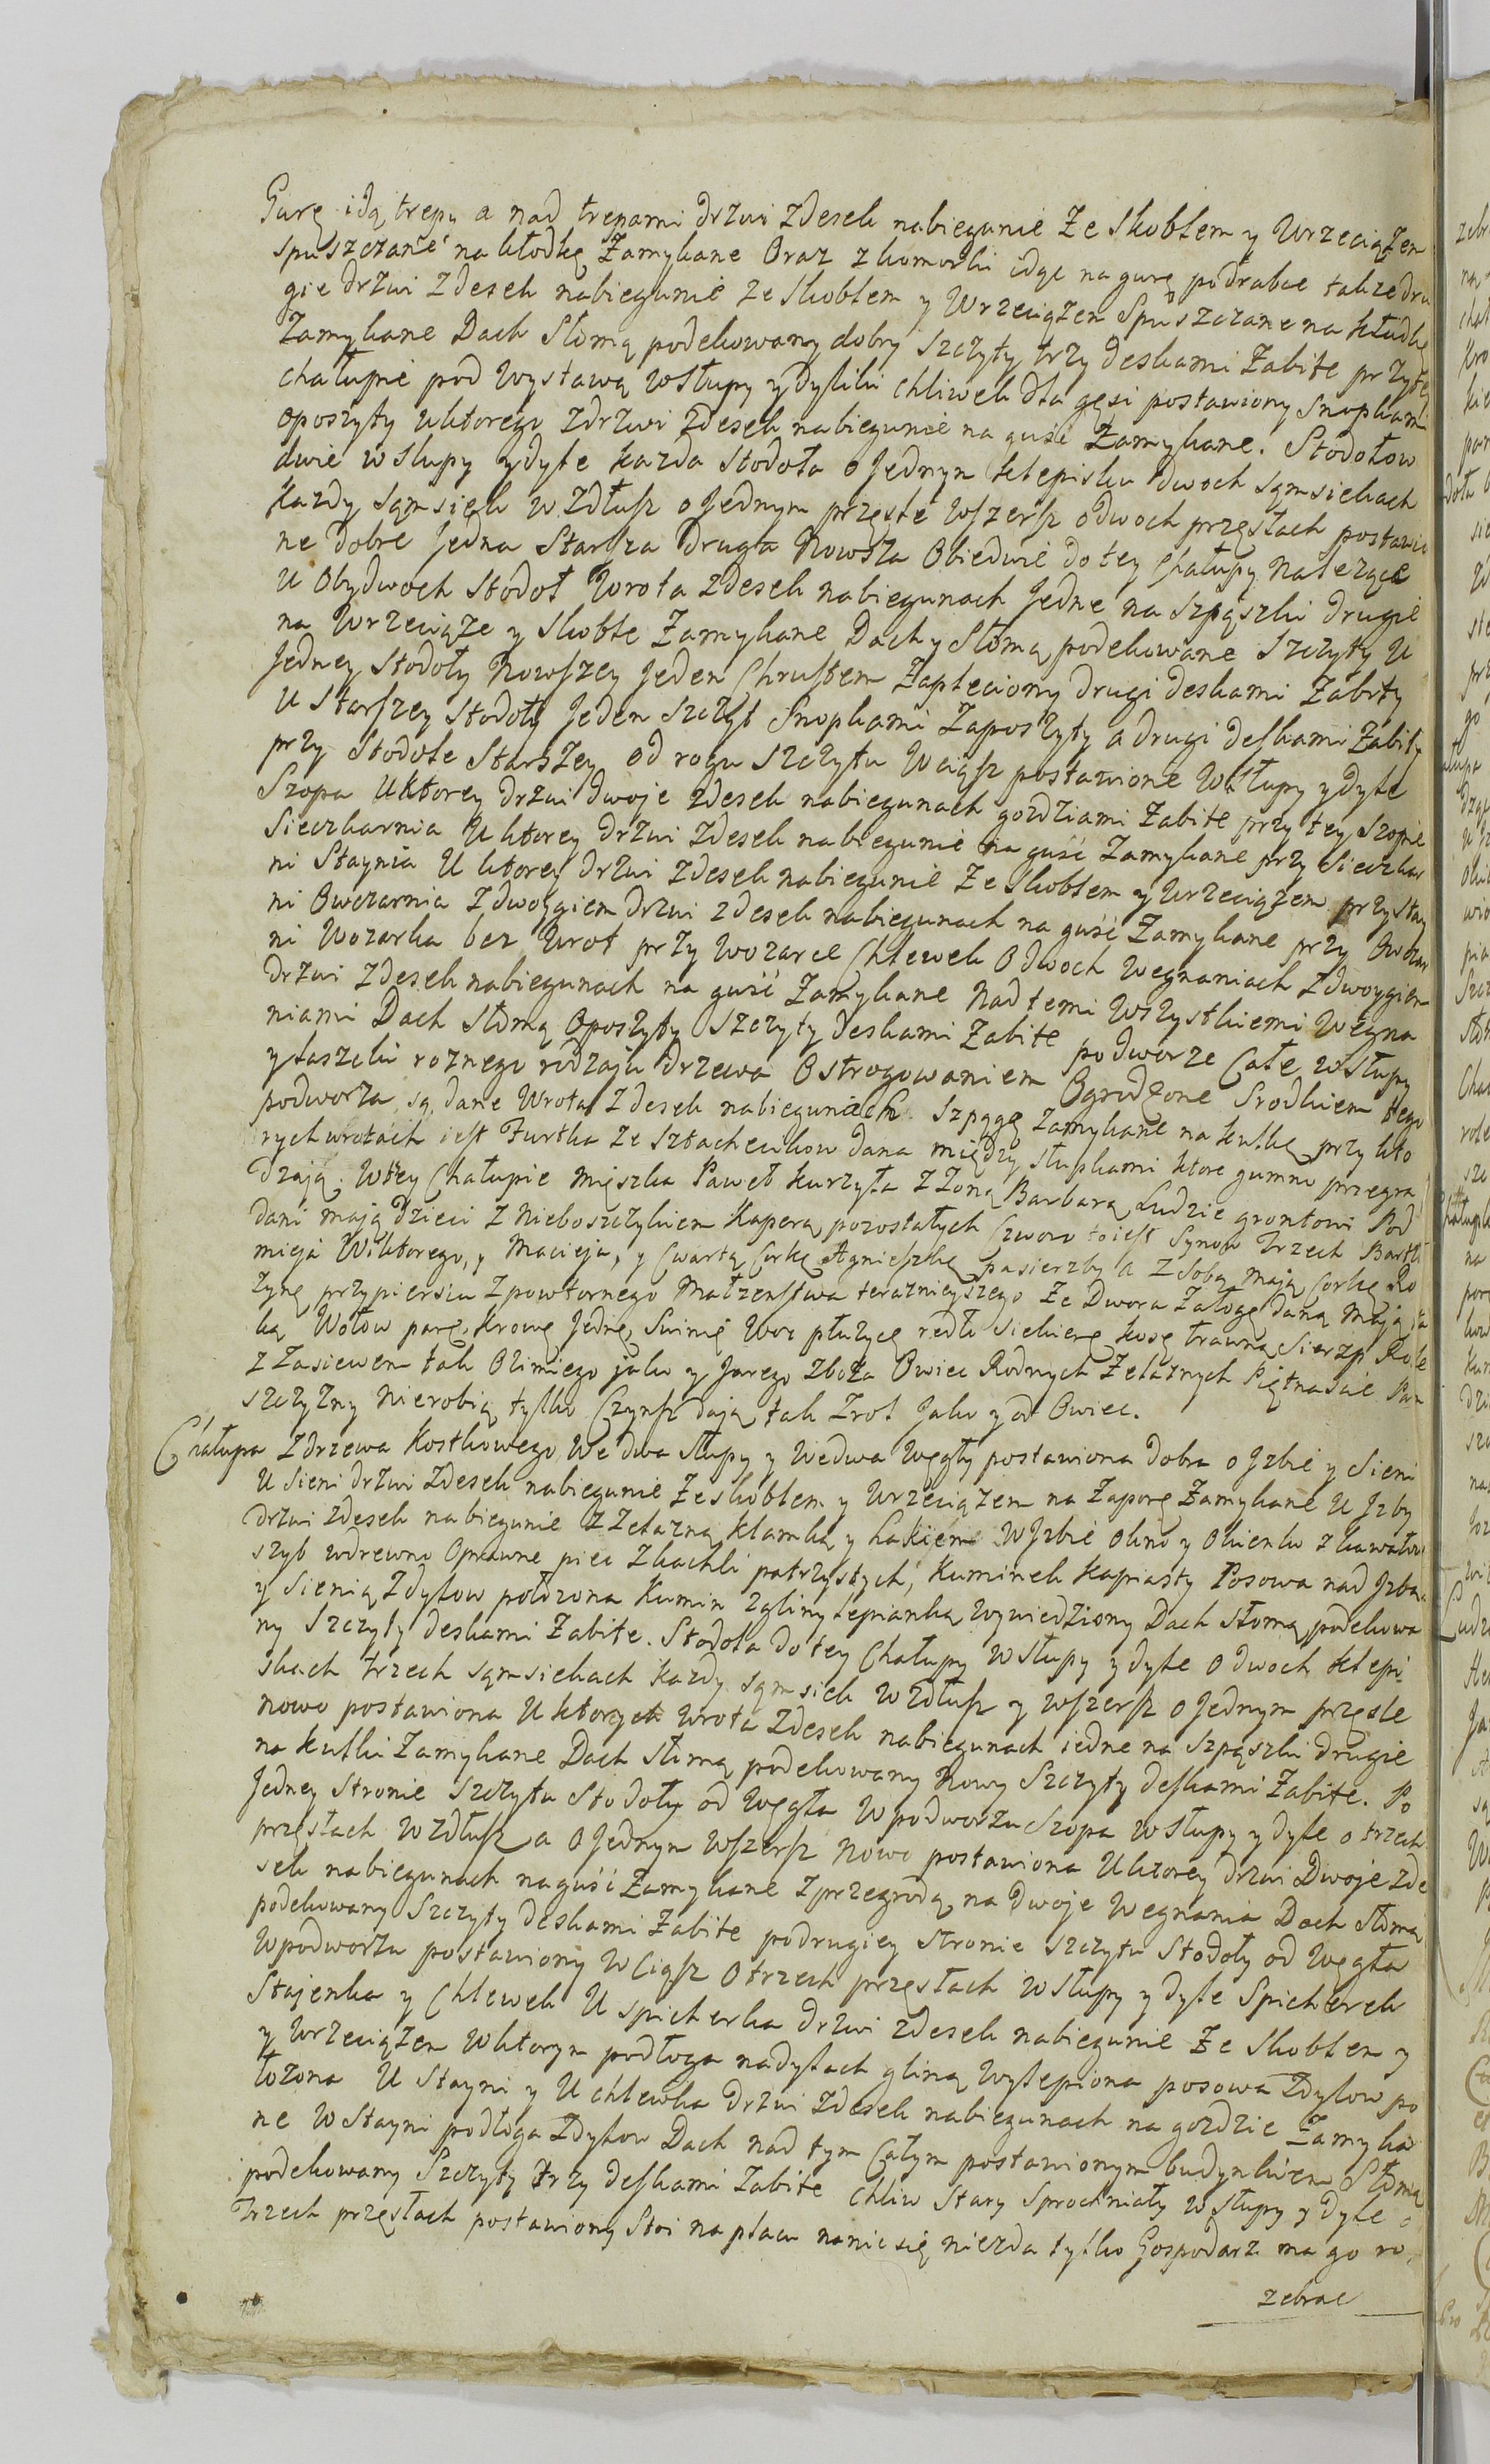 Gurę idą trepy a nad trepami drzwi zdesek nabiegunie Ze Skoblem y Wrzeciązem
spuszczanie na kłodkę Zamykane Oraz z komorki idąc na gurę podrabce takze dru
gie drzwi zdesek nabiegunie ze Skoblem y Wrzeciązem Spuszczane na kłudkę
Zamykane Dach Słomą podekowany dobry szczyty trzy deskami Zabite przytey
chałupie pod Wystawą wsłupy y dyliki chliwek dla gęsi postawiony Snopkami
oposzyty uktorego zdrzwi zdesek nabiegunie na guść Zamykane. Stodołow
dwie w słupy y dyle kazda stodoła o Jednym klepisku dwoch sąmsiekach
kazdy sąmsiek w Zdłusz o Jednym pręste wszersz o dwoch przęsłach postawio
ne dobre Jedna Starsza druga Nowsza Obiedwie do tey Chałupy Nalezące
U Obydwoch Stodoł Wrota zdesek nabiegunach Jedne na szpąszki drugie
na Wrzeciąze y skoble Zamykane Dachy Słomą podekowane Szczyty U
Jedney Stodoły Nowszey Jeden Chrustem Zapleciony drugi deskami Zabity
U Starszey Stodoły Jeden szczyt Snopkami Zaposzyty a drugi deskami Zabity
przy Stodole Starszey od rogu szczytu Wciąsz postawione Wsłupy y dyle
Szopa Uktorey drzwi dwoje zdesek nabiegunach gozdziami Zabite przy tey szopie
Sieczkarnia Uktorey drzwi Zdesek nabiegunie na guść Zamykane przy Sieczkar
ni Staynia Uktorey drzwi Zdesek nabiegunie Ze Skoblem y Wrzeciązem przystay
ni Owczarnia Zdwoygiem drzwi zdesek nabiegunach na guść Zamykane przy Owczar
ni Wozarka bez Wrot przy Wozarce Chlewek Odwoch Wegnaniach Zdwoygiem
drzwi Zdesek nabiegunach na guść Zamykane Nadtemi Wszystkiemi Wegna
niami Dach słomą Oposzyty Szczyty deskami Zabite podworze Całe wsłupy
y łaszeki roznego rodzaju drzewa Ostrogowaniem Ogrodzone Srodkiem tego
podworza są dane Wrota Zdesek nabiegunach Szpągą Zamykane na kulkę przy kto
rych wrotach iest Furtka Ze sztachecikow dana między słupkami ktore gumno przegra
dzają. Wtey Chałupie mięszka Paweł Kurzyła Z Zoną Barbarą Ludzie grontowi Pod
dani mają Dzieci Z Nieboszczykiem Kaperą pozostałych Czworo toiest Synow Trzech Bartło
mieja Wiktorego, y Macieja, y Cwartą Corkę Agnieszkę pasierzby a Z Sobą mają Corkę Ro
zynę przypiersiu Zpowtornego Małzenstwa teraznieyszego Ze Dworu Załogę daną mają ta
ką Wołow parę, Krowę Jednę, Swinię Woz płużycę redło Siekierę kosę trawną Sierzp Role
z Zasiewem tak Ozimiego jako y Jarego zboża Owiec Rodnych Zelaznych Piętnascie Pan
szczyzny Nierobią tylko Czynsz dają tak Zrol Jako y od Owiec.
Chałupa Zdrzewa kostkowego We dwa Słupy y Wedwa Węgły postawiona dobra o Jzbie y Sieni
U Sieni drzwi Zdesek nabiegunie Ze skoblem y Wrzeciązem na Zaporę Zamykane U Jzby
drzwi Zdesek nabiegunie z Zelazną Klamką y hakiem WJzbie okno y Okienko z kawałkow
szyb wdrewno Oprawne piec Zkachli patrzystych, Kuminek kapiasty Posowa nad Jzbą
y Sienią Zdylow połozona Kumin zgliny lepianką Wywiedziony Dach słomą podekowa
ny Szczyty deskami Zabite. Stodoła do tey Chałupy Wsłupy y dyle o dwoch klepi
skach trzech sąmsiekach kazdy sąmsiek Wzdłusz y wszersz o Jednym pręsle
nowo postawiona Uktorych Wrota Zdesek nabiegunach iedne na Szpąszki drugie
na kulki Zamykane Dach słomą podekowany Nowy Szczyty deskami Zabite. Po
Jedney Stronie szczytu Stodoły od Węgła Wpodworzu Szopa wsłupy y dyle o trzech
przęsłach Wzdłusz a o Jednym wszersz nowo postawiona Uktorey drzwi Dwoje zde
sek nabiegunach naguść Zamykane Zprzegrodą na dwoje Wegnania Dach Słomą
podekowany Szczyty deskami Zabite podrugiey stronie szczytu Stodoły od Węgła
Wpodworzu postawiony Wciąsz Otrzech przęsłach wsłupy y dyle Spicherek
Stajenka y Chlewek U spicherka drzwi zdesek nabiegunie Ze Skoblem y
y Wrzeciązem Wktorym podłoga nadylach gliną Wylepiona posowa Zdylow po
łozona U Stayni y U chlewka drzwi Zdesek nabiegunach na gozdzie Zamyka
ne WStayni podłoga Zdylow Dach nad tym Całym postawionym budynkiem Słomą
podekowany Szczyty trzy deskami Zabite chliw Stary Sprochniały wsłupy y dyle o
Trzech przęsłach postawiony Stoi na placu nanic się niezda tylko Gospodarz ma go ro,
zebrac